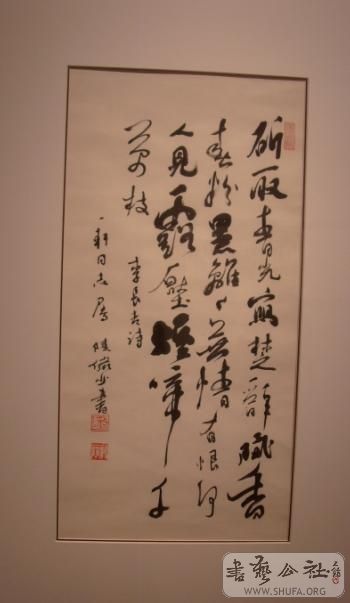 斫取青光寫楚辭膩香
春粉黑離々無情有恨何
人見露壓煙啼千
萬枝 李長吉詩
一軒同志屬 陸儼少書
書藝公社
WWW.SHUFA.ORG